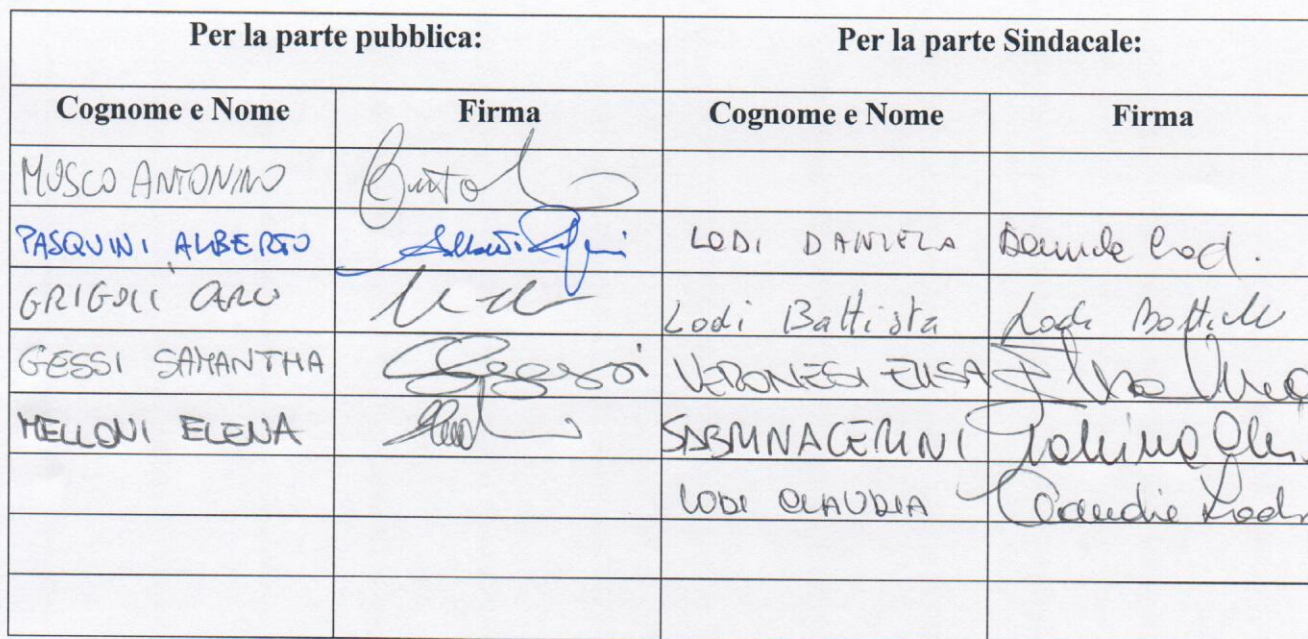 Per la parte pubblica: Per la parte Sindacale:
Cognome e Nome Firma Cognome e Nome Firma
MUSCO ANTONINO
PASQUINI ALBERTO LODI DANIELA Daniela Lodi
GRIGOLI CARO Lodi Battista Lodi Battista
GESSI SAMANTHA Gessi VERONESI ELISA
MELLONI ELENA SABRINA CERINI
LODI CLAUDIA Claudia Lodi